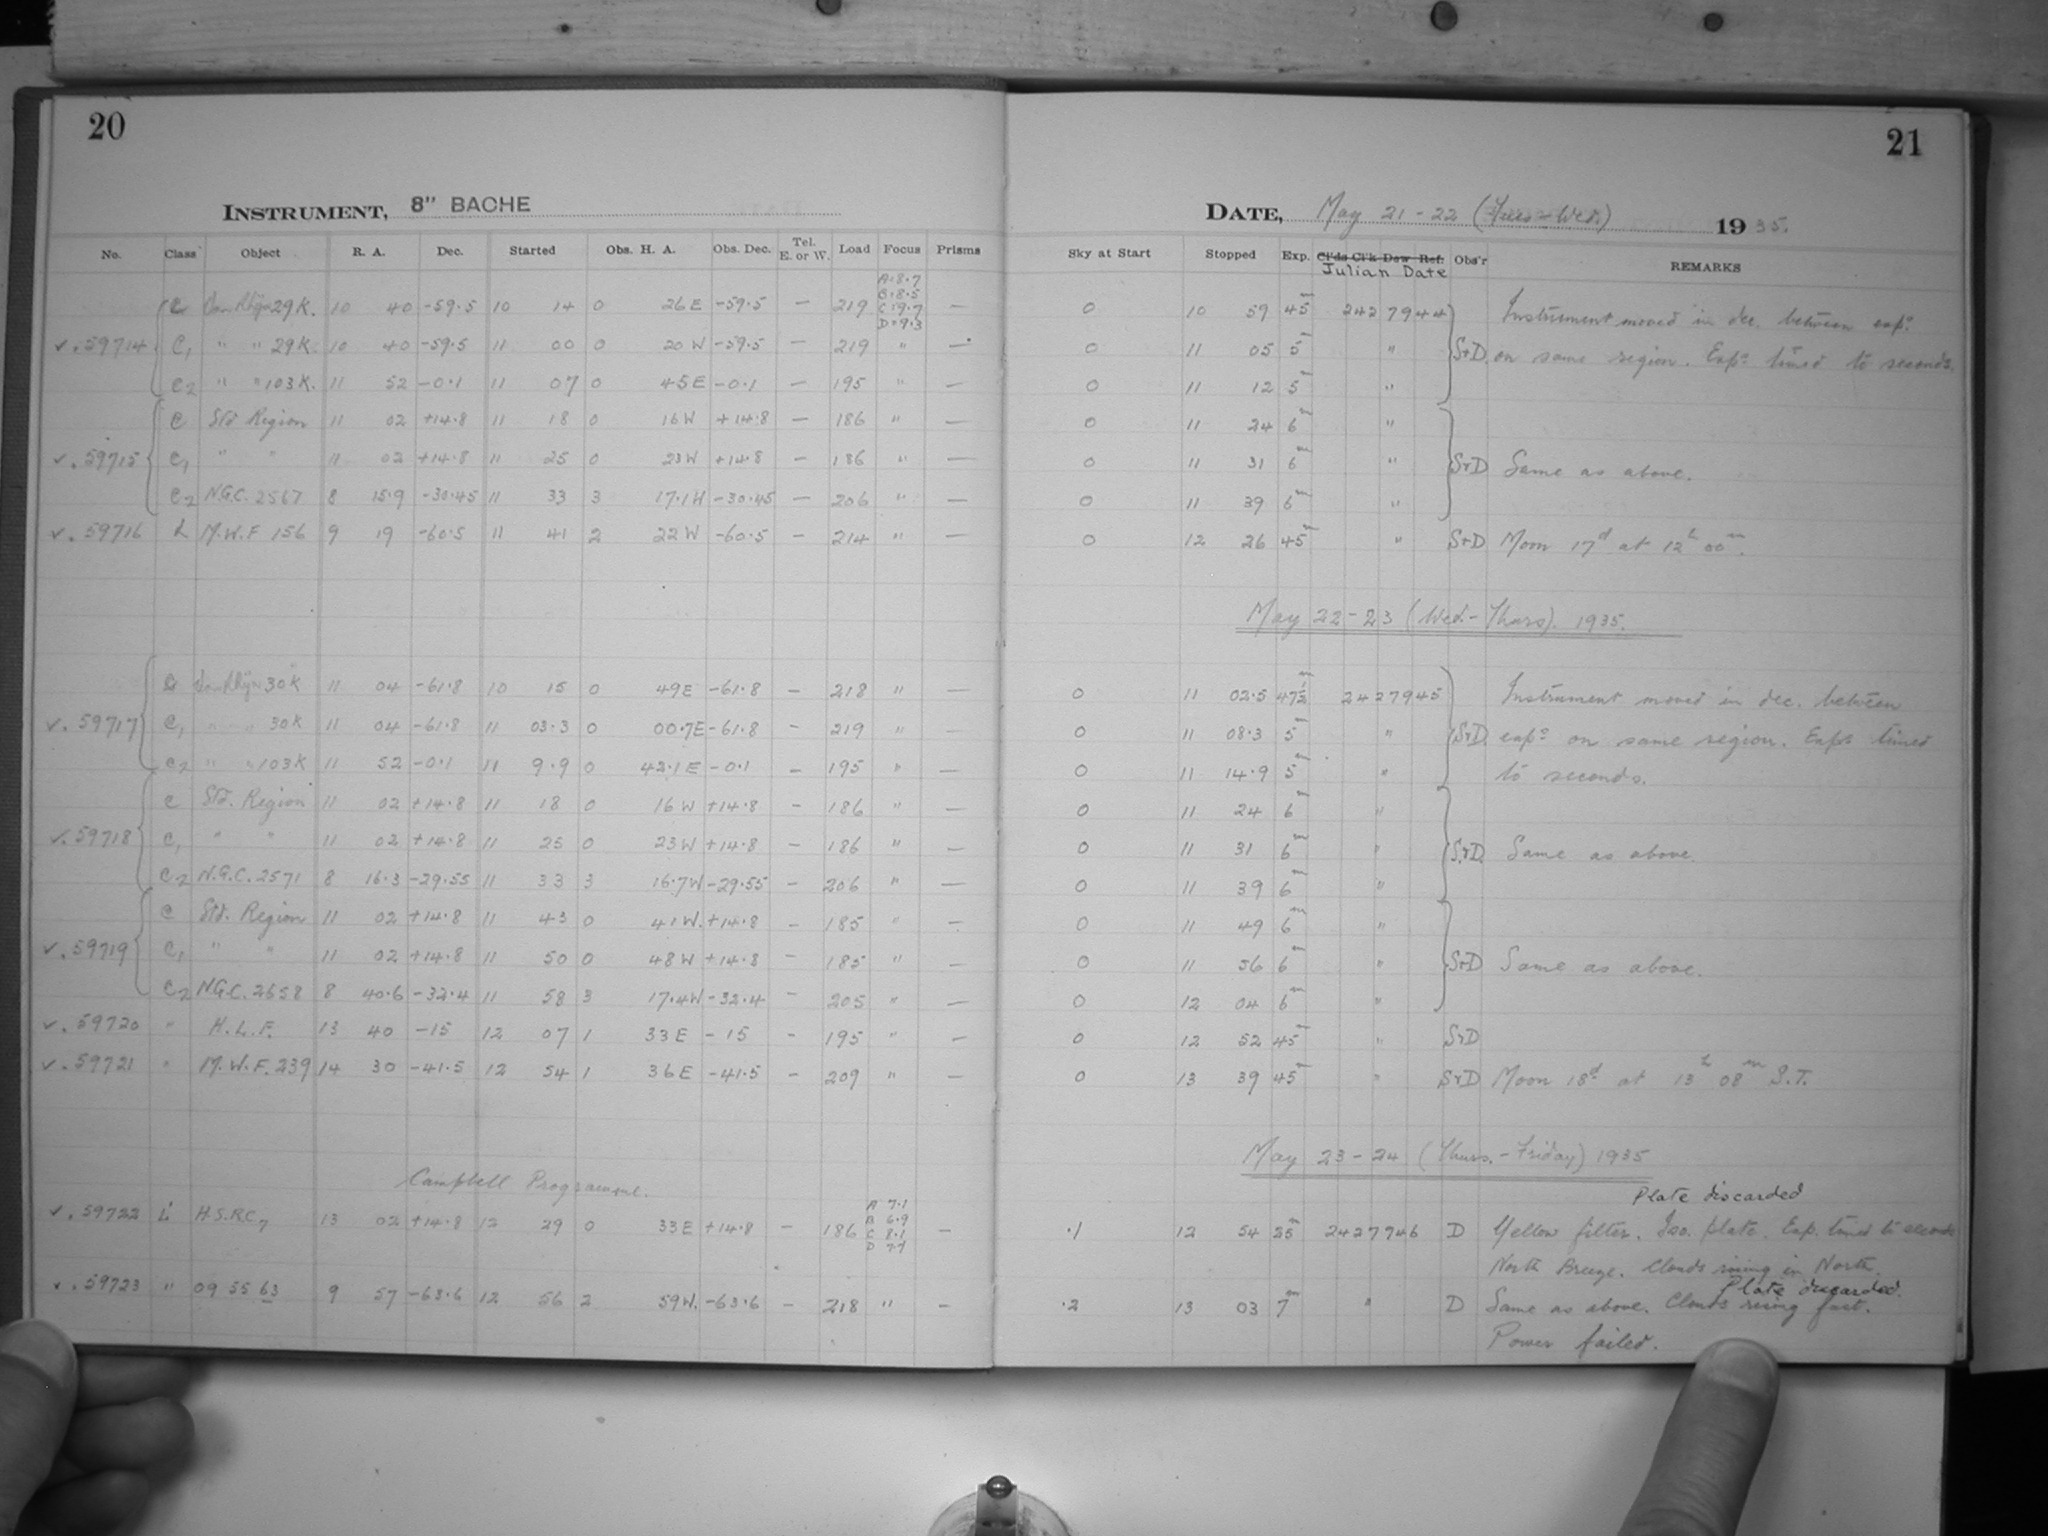 20
INSTRUMENT, 8" BACHE
No. Class Object R. A. Dec. Started Obs. H. A. Obs. Dec. Tel. E. or W. Load Focus Prisms
A=8.7
B=8.5
C=9.7
D=9.3
C Van Rhijn 29K. 10 40 -59.5 10 14 0 26E -59.5 — 219 —
✓. 59714 C1 " " 29K. 10 40 -59.5 11 00 0 20W -59.5 — 219 " —
C2 " " 103K. 11 52 -0.1 11 07 0 45E -0.1 — 195 " —
C Std Region 11 02 +14.8 11 18 0 16W +14.8 — 186 " —
✓. 59715 C1 " " 11 02 +14.8 11 25 0 23W +14.8 — 186 " —
C2 N.G.C. 2567 8 15.9 -30.45 11 33 3 17.1W -30.45 — 206 " —
✓. 59716 L M.W.F 156 9 19 -60.5 11 41 2 22W -60.5 — 214 " —
Van Rhijn 30K 11 04 -61.8 10 15 0 49E -61.8 — 218 " —
✓. 59717 C1 " " 30K 11 04 -61.8 11 03.3 0 00.7E -61.8 — 219 " —
C2 " " 103K 11 52 -0.1 11 9.9 0 42.1E -0.1 — 195 " —
C Std. Region 11 02 +14.8 11 18 0 16W +14.8 — 186 " —
✓. 59718 C1 " " 11 02 +14.8 11 25 0 23W +14.8 — 186 " —
C2 N.G.C. 2571 8 16.3 -29.55 11 33 3 16.7W -29.55 — 206 " —
C Std. Region 11 02 +14.8 11 43 0 41W. +14.8 — 185 " —
✓. 59719 C1 " " 11 02 +14.8 11 50 0 48W +14.8 — 185 " —
C2 N.G.C. 2658 8 40.6 -32.4 11 58 3 17.4W -32.4 — 205 " —
✓. 59720 " H.L.F. 13 40 -15 12 07 1 33E -15 — 195 " —
✓. 59721 " M.W.F. 239 14 30 -41.5 12 54 1 36E -41.5 — 209 " —
Campbell Programme.
✓. 59722 L H.S.R.C7 13 02 +14.8 12 29 0 33E +14.8 — 186 —
A 7.1
B 6.9
C 8.1
D 7.7
✓. 59723 " 09 55 63 9 57 -63.6 12 56 2 59W. -63.6 — 218 " —
21
DATE, May 21-22 (Tues-Wed.) 1935.
Sky at Start Stopped Exp. Cl'ds Cl'k Dew Ref. Obs'r REMARKS
Julian Date
0 10 59 45m 2427944 Instrument moved in dec. between exps
0 11 05 5m " S+D. on same region. Exps timed to seconds.
0 11 12 5m "
0 11 24 6m "
0 11 31 6m " S+D Same as above.
0 11 39 6m "
0 12 26 45m " S+D Moon 17d at 12h 00m.
May 22-23 (Wed.-Thurs). 1935.
0 11 02.5 47½m 2427945 Instrument moved in dec. between
0 11 08.3 5m " S+D. exps on same region. Exps timed
0 11 14.9 5m " to seconds.
0 11 24 6m "
0 11 31 6m " S+D. Same as above.
0 11 39 6m "
0 11 49 6m "
0 11 56 6m " S+D Same as above.
0 12 04 6m "
0 12 52 45m " S+D
0 13 39 45m " S+D Moon 18d at 13h 08m S.T.
May 23-24 (Thurs.-Friday) 1935
Plate discarded
.1 12 54 25m 2427946 D Yellow filter. Iso. plate. Exp. timed to seconds
North Breeze. Clouds rising in North.
Plate discarded.
.2 13 03 7m " D Same as above. Clouds rising fast.
Power failed.